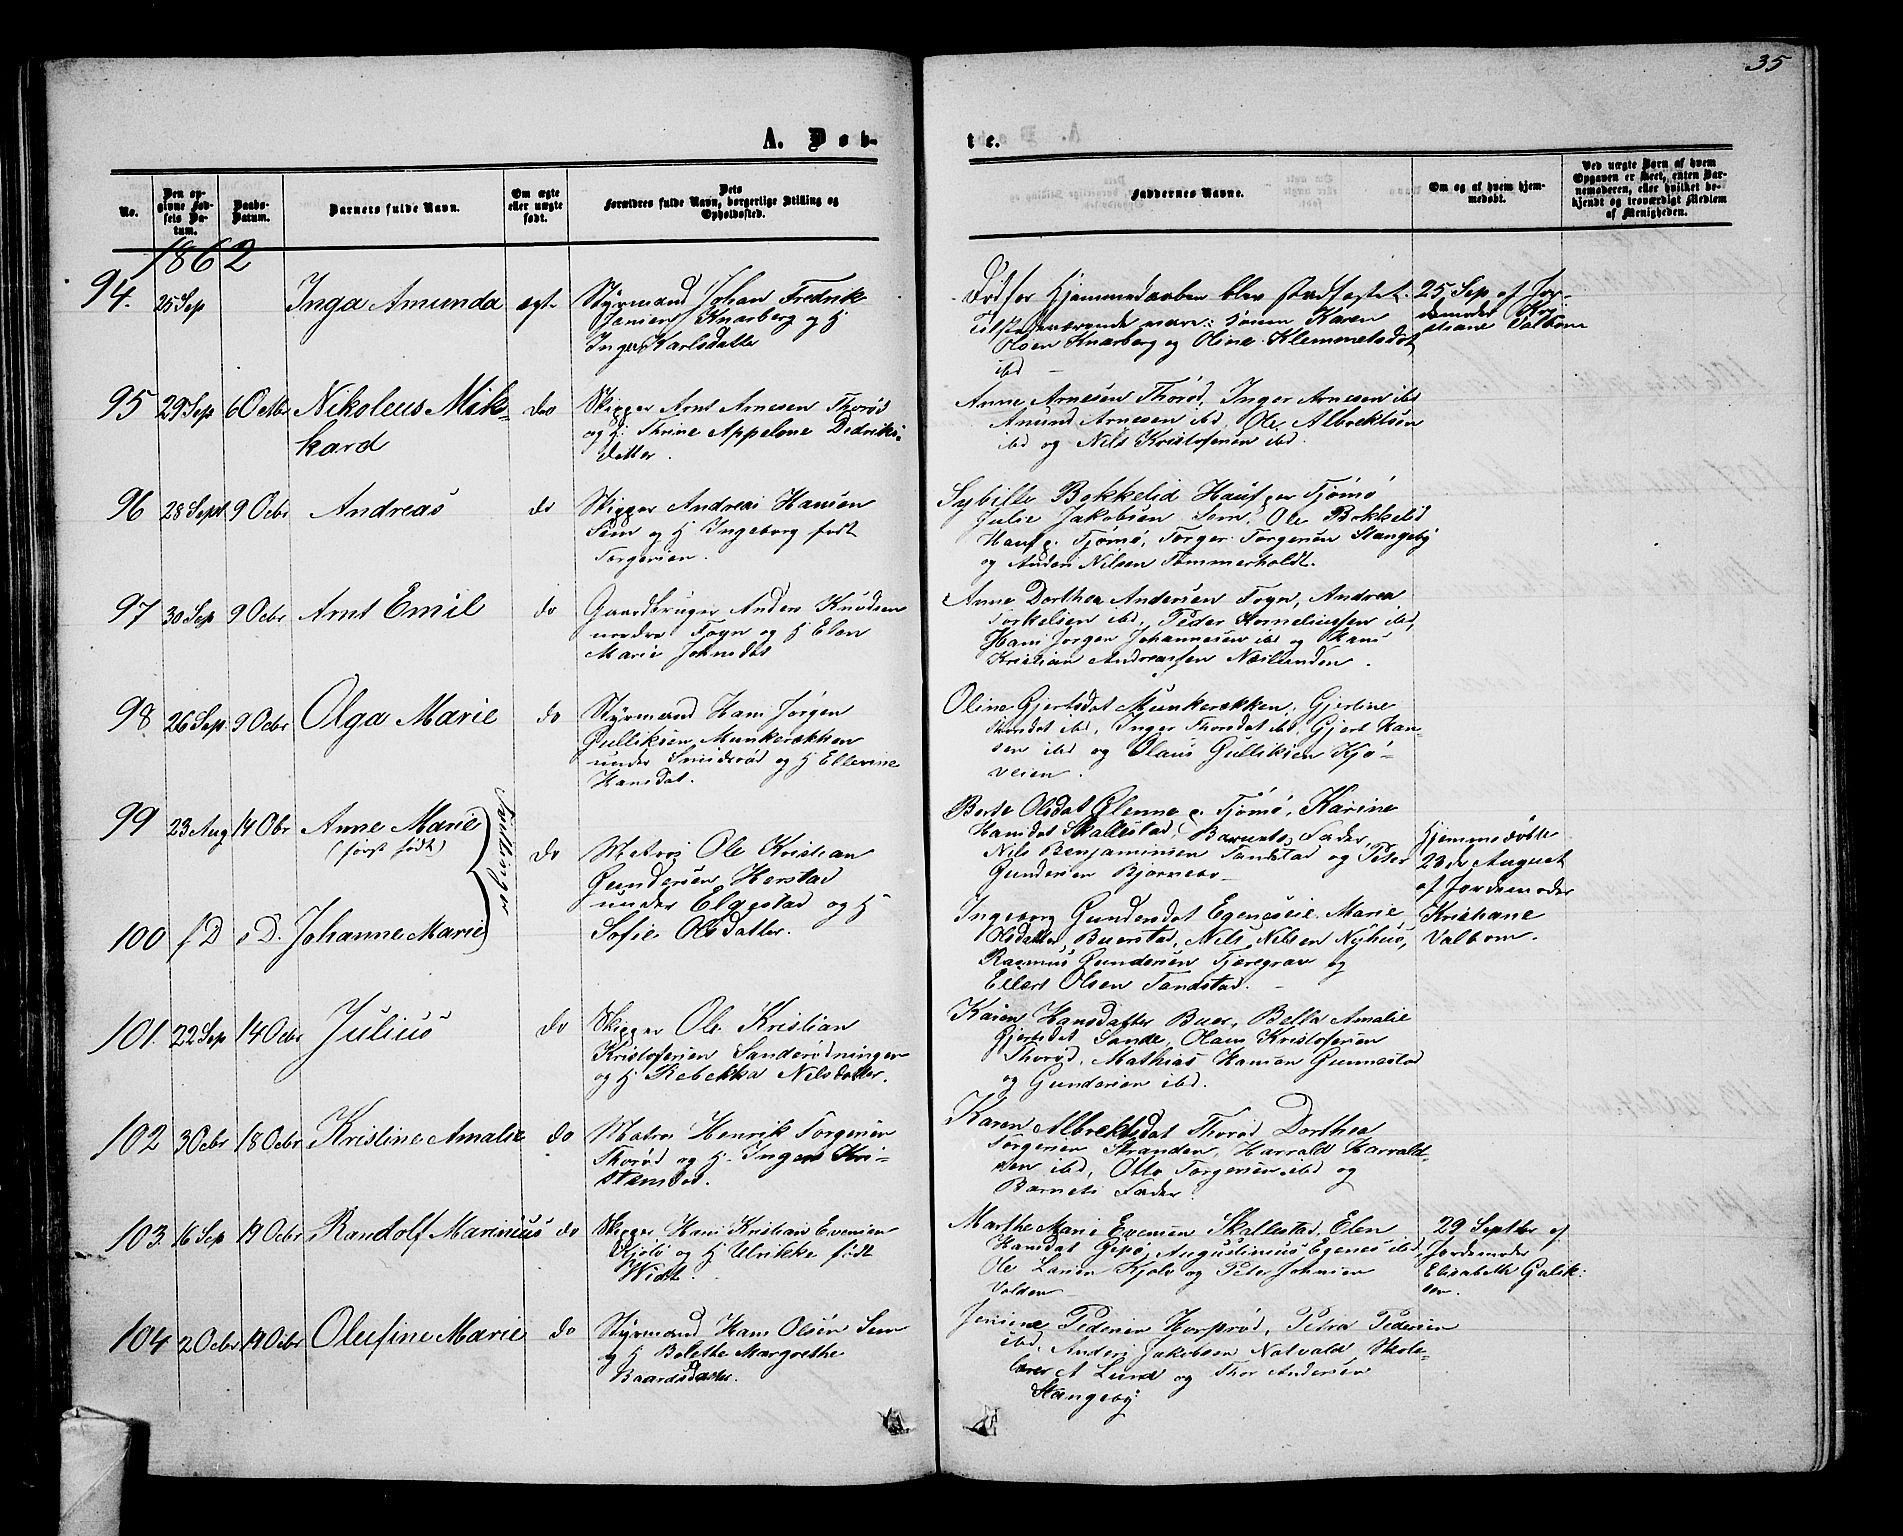 35
A. Døb-
te.
No.
Den op-
givne Fød-
sels Da-
tum.
Daabs-
Datum.
Barnets fulde Navn.
Om ægte
eller uægte
født.
Dets
Forældres fulde Navn, borgerlige Stilling og
Opholdssted.
Faddernes Navne.
Om og af hvem hjem-
medøbt.
Ved uægte Børn af hvem
Opgaven er skeet, enten Bar-
nemoderen, eller hvilket be-
kjendt og troværdigt Medlem
af Menigheden.
1862
94. 25 Sep Inga Amunda ægt
Styrmand Johan Fredrik
Jensen Knarberg og H
Inger Karlsdatte
Hjemmedaaben blev stadfæstet.
Tilstedeværende vare: Karen
Olsen Knarberg og Oline Klemmetsdat
ibd
25 Sep af Jor-
demoder Kri
stiane Valbom
95 29 Sep 6 Octbr Nikoleus Mik-
kard
do
Skipper Arnt Arnesen Thorød
og H. Thrine Appelone Dedriks-
datter.
Anne Arnesen Thorød, Inger Arnesen ibd
Amund Arnesen ibd, Ole Albrektsen
ibd og Nils Kristofersen ibd.
96 28 Sept 9 Ocbr Andreas do
Skipper Andreas Hansen
Sem og H Ingeborg født
Torgersen.
Sybille Bokkelid Tjømø
Julie Jakobsen Sem, Ole Bokkelid
Tjømø, Torger Torgersen Stangeby
og Anders Nilsen Tømmerholdt.
97 30 Sep 9 Ocbr Arnt Emil do
Gaardbruger Anders Knudsen
nordre Føyn og H Elen
Marie Johnsdat
Anne Dorthea Andersen Foyn, Andrea
Torkelsen ibd, Peder Korneliussen ibd,
Hans Jorgen Johannesen ibd og Hans
Kristian Andreassen Næslunden.
98 26 Sep. 9 Ocbr Olga Marie do
Styrmand Hans Jørgen
Gulliksen Munkerækken
under Smidsrød og H Ellevine
Hansdat.
Oline Gjertsdat Munkerækken, Gjertine
Thorsdat ibd, Inger Thorsdat ibd, Gjert Han-
sen ibd og Olaus Gulliksen Kjø-
veien.
99 23 Aug 14 Obr Anne Marie
(først født)
Tvillinger
do
Matros Ole Kristian
Gundersen Herstad
under Elgestad og H
Sofie Olsdatter.
Berte Olsdat Glenne p. Tjømø, Karine
Hansdat Skallestad, Barnets Fader,
Nils Benjaminsen Tandstad og Peter
Gundersen Bjørnebo
Hjemmedøbte
23de August
af Jordemoder
Kristiane
Valbom.
100 s D. s D. Johanne Marie
Ingeborg Gundersdat Egeneseie, Marie
Olsdatter Buerstad, Nils Nilsen Nyhus,
Rasmus Gundersen Tjæregrav og
Ellert Olsen Tandstad.
101. 22 Sep 14 Ocbr Julius do
Skipper Ole Kristian
Kristofersen Sanderødningen
og H Rebekka Nilsdatter.
Karen Hansdatter Buer, Bella Amalie
Gjertsdat Sande, Olaus Kristofersen
Thorød, Mathias Hansen Gunnestad
og Gundersen ibd.
102 3 Ocbr 18 Ocbr Kristine Amalie do
Matros Henrik Torgersen
Thorød og H. Inger Kri-
stensdat.
Karen Albrektsdat Thorød Dorthea
Torgersen Stranden, Harrald Harrald-
sen ibd, Otto Torgersen ibd og
Barnets Fader.
103 16 Sep 19 Ocbr Randolf Marinius do
Skipper Hans Kristian Evensen
Kjolø og H Ulrikke født
Widt.
Marthe Marie Evensen Skallestad, Elen
Hansdat Gipø, Augustinius Egenes ibd,
Ole Larsen Kjolø og Peter Johnsen
Volden
29 Septber af
Jordemoder
Elisabeth Gulik-
sen.
104 2 Ocbr 19 Ocbr Olufine Marie do
Styrmand Hans Olsen Sem
og H Bolethe Margrethe
Baardsdatter.
Jensine Pedersen Horprød, Petra Pedersen
ibd, Anders Jakobsen Natvald Skole-
lærer A Lund og Thor Andersen
Stangeby